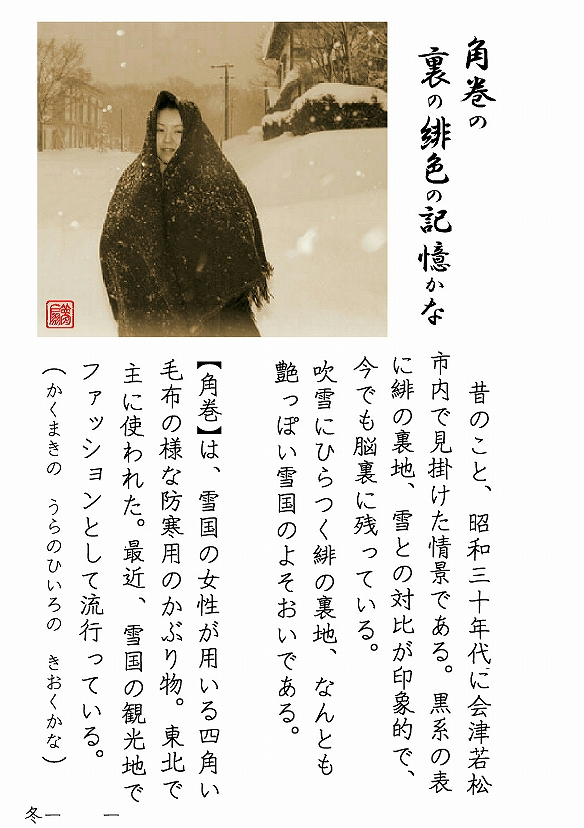 角巻の
裏の緋色の記憶かな
昔のこと、昭和三十年代に会津若松
市内で見掛けた情景である。黒系の表
に緋の裏地、雪との対比が印象的で、
今でも脳裏に残っている。
吹雪にひらつく緋の裏地、なんとも
艶っぽい雪国のよそおいである。
【角巻】は、雪国の女性が用いる四角い
毛布の様な防寒用のかぶり物。東北で
主に使われた。最近、雪国の観光地で
ファッションとして流行っている。
(かくまきの　うらのひいろの　きおくかな)
冬一　　一